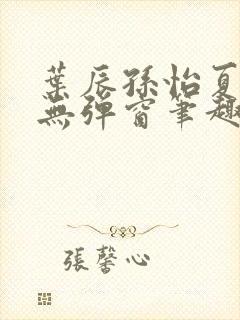 葉辰孫怡夏
無彈窗筆趣
張馨心